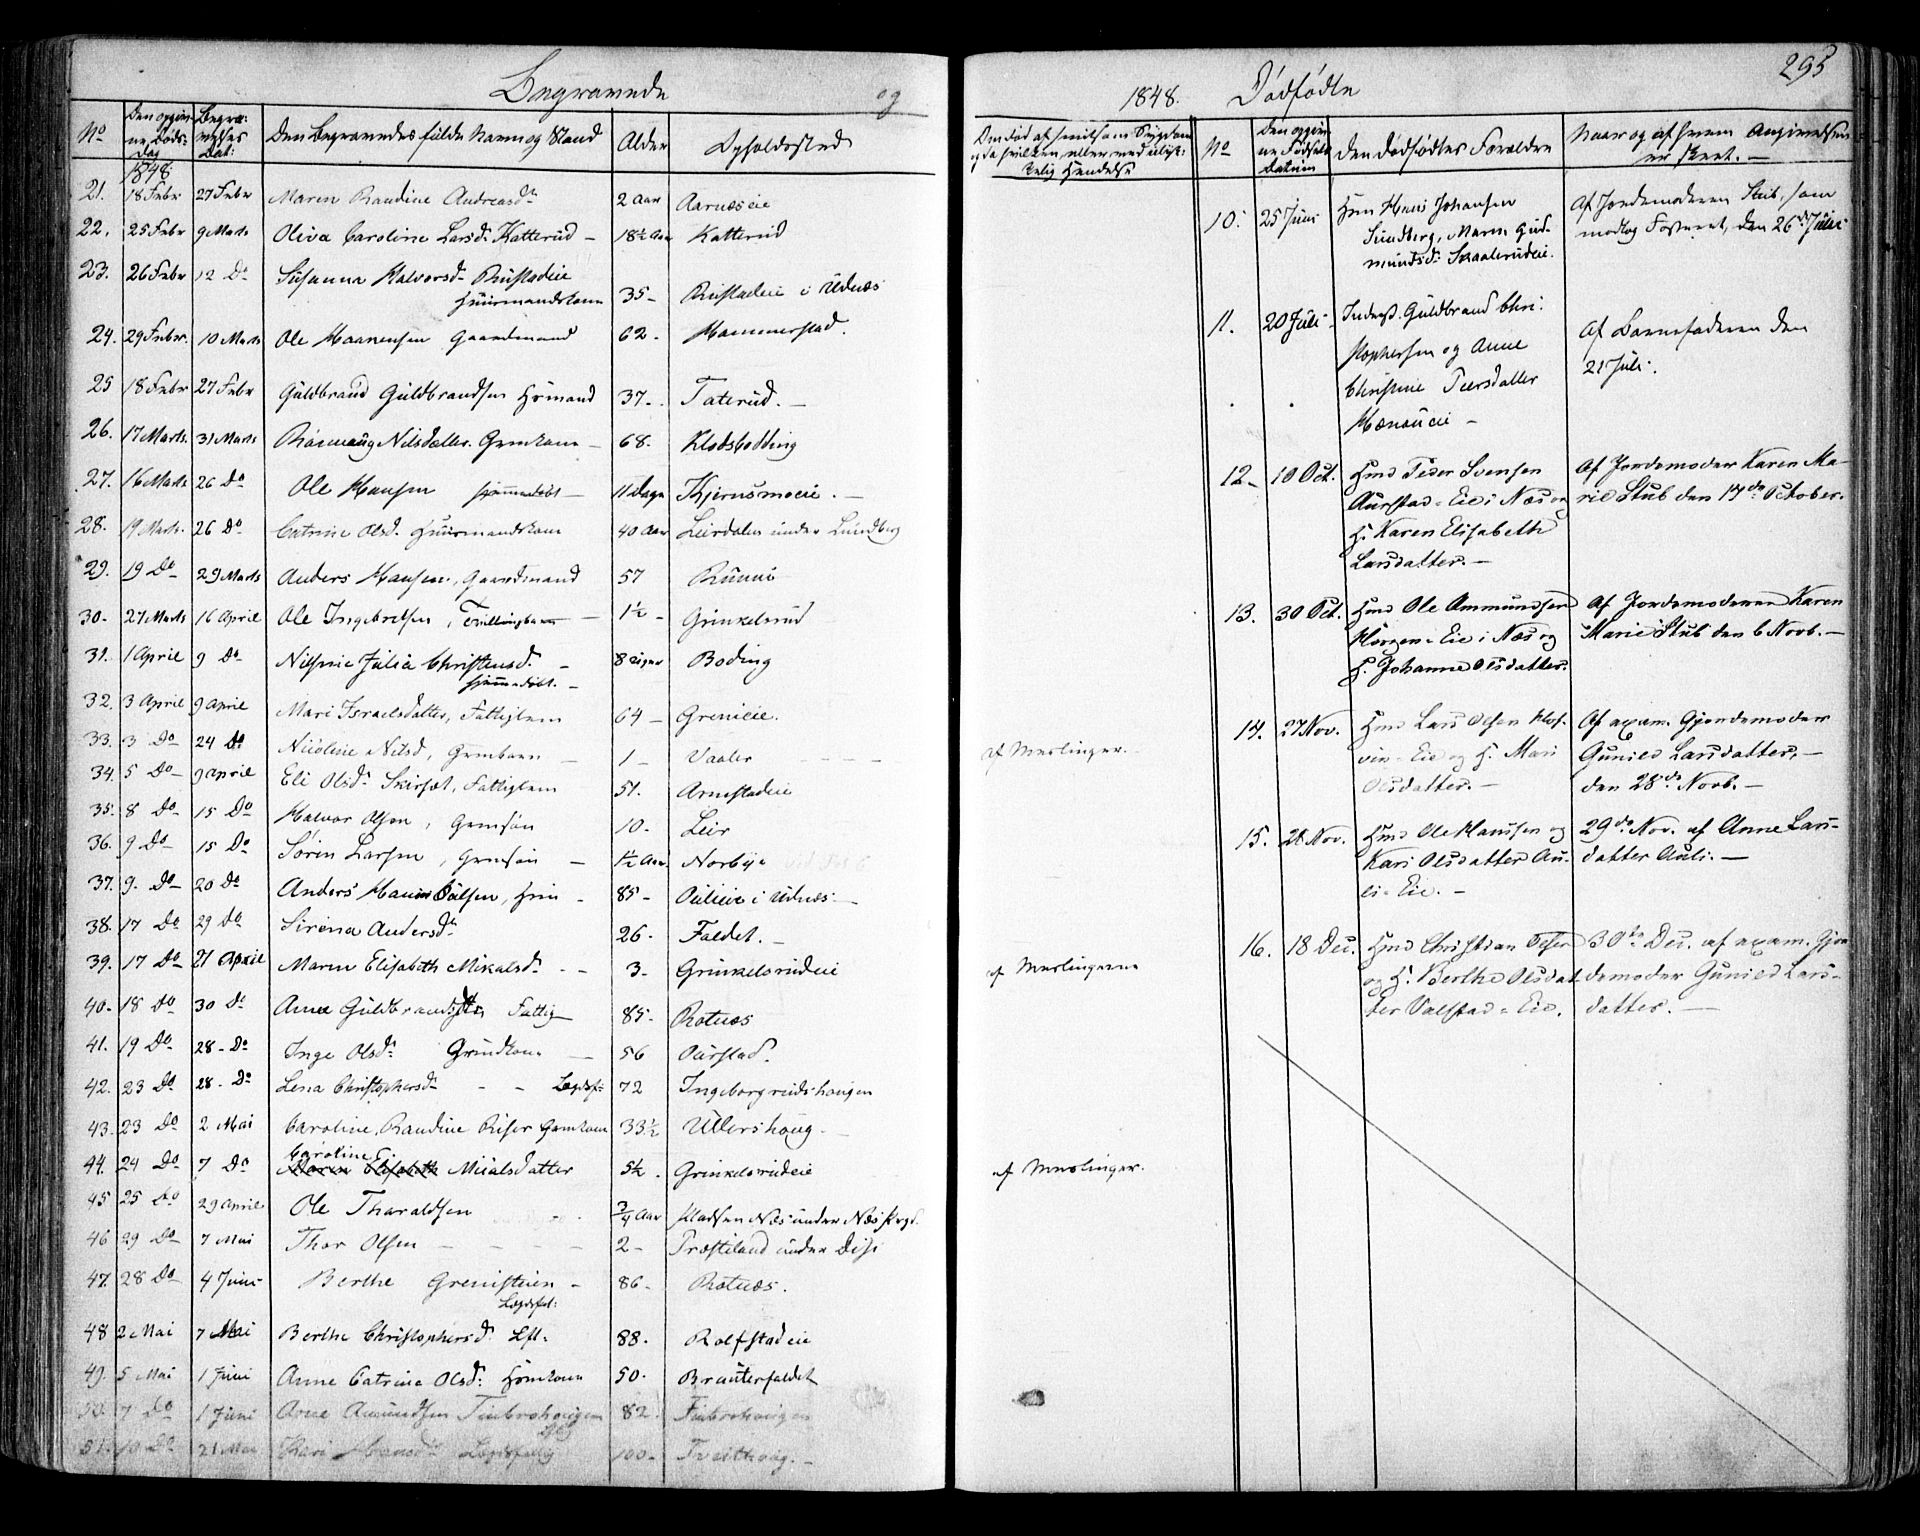 Begravede og
1848. Dødfødte 295
No Den opgivne Døds-Dag Begravelses Dat: Den Begravedes fulde Navn og Stand Alder Opholdssted
1848
21. 18 Febr 27 Febr Maren Randine Andreasdr 2 Aar Aarnæseie
22. 25 Febr 9 Marts Oliva Caroline Larsd: Katterud – 18½ Aar Katterud
23. 26 Febr 12 Do Susanna Halvorsd. Rustadeie
Huusmandskone 35 – Rustadeie i Udnæs
24. 29 Febr. 10 Marts Ole Gaardmand 62. Hammerstad.
25 18 Febr 27 Febr Guldbrand Guldbrandsen Huusmand 37 – Taterud. –
26. 17 Marts. 31 Marts Nilsdatter. 68. Klodsbodding
27. 16 Marts 26 Do Ole Hansen hjemmedøbt – 11 Dage Kjernsmoeie. –
28. 19 Marts. 26 Do Catrine Olsd. Huusmandskone 40 Aar Leirdalen under Lundberg
29. 19 Do 29 Marts Anders Hansen, Gaardmand 57 Runni
30. 27 Marts 16 April Ole Ingebretsen, Tvillingbarn – 1½ – Grinkelsrud
31. 1 April 9 Do Nilsine Julia Christensd. –
hjemmedøbt. – 8 Boding
32. 3 April 9 April Mari Israelsdatter, Fattiglem 64 – Grenieie.
33. 3 Do 24 Do Nicoline Nilsd, – 1 – Vaaler – – – – af Meslinger.
34. 5 Do 9 April Eli Olsd. Fattiglem 51. Arnestadeie
35. 8 Do 15 Do Halvor Olsen, 10. Leir
36. 9 Do 15 Do Søren Larsen, – 1½ Aar Norbye
37. 9. Do 20 Do Anders 85 – i Udnæs –
38. 17 Do 29 Do Sirena Andersdr 26. Faldet. –
39. 17 Do 21 April Maren Elisabeth Mikalsd. – – 3. Grinkelsrudeie af Meslingerne
40. 18 Do 30 Do Anne Guldbrandsdtr, Fattig – 85. Rotnæs
41. 19 Do 28 – Do Inge Olsd. – 56 Aurstad.
42. 23 Do 28 – Do Lena Christophersd. – – Lægdsf: 72 Ingeborgrudshaugen
43. 23 Do 2 Mai Caroline Randine Riser 33½ Ullershoug –
44. 24 Do 7 Do Caroline E.
Maren Elisabeth Micalsdatter 5½. Grinkelsrudeie af Meslinger.
45 25 Do 29 April Ole Tharaldsen ¾ Aar Næs under Næs
46 29 Do 7 Mai Thor Olsen – – – – 2 – Præstiland under Disi
47. 28 Do 4 Juni Berthe Grenistuen –
Lægdsf: 86 – Rotnæs.
48 2 Mai 7 Mai Berthe Christophersd. 88. Rolfstadeie
49. 5 Mai 1 Juni Anne Catrine Olsd: Huuskone 50. Brauterfaldet
50. 7 Do 1 Juni Arne Amundsen 82.
51. 10 Do 21 Mai Kari Hansd. Lægdsfattig 100 – Tveithoug. –
No Den opgivne Fødsels Datum Den Dødfødtes Forældre Naar og af hvem Angivelsen er skeet. –
10. 25 Juni Hmd Hans Johansen
Sundberg, Maren Gud-
mundsd. Skaalerudeie.
Af Jordemoderen Stub, som
modtog Fosteret, den 26de Juni
11. 20 Juli Inderst. Guldbrand Chri-
stophersen og Anne
Christine Peersdatter
Hænoueie –
Af Barnefaderen den
21 Juli.
12 – 10 Oct. Hmd Peder Svensen
Aurstad – Eie i Næs og
H. Karen Elisabeth
Larsdatter. –
Af Jordemoder Karen Ma-
rie Stub den 17de October.
13. 30 Oct. Hmd Ole Ammundsen
Horgen – Eie i Næs og
H. Johanne Olsdatter.
Af Jordemoderen Karen
Marie Stub den 6 Novb. –
14. 27 Nov. Hmd Lars Olsen Hof-
vin – Eie og H. Mari
Olsdatter. –
Af exam. Gjordemoder
Gunild Larsdatter, –
den 28de Novb. –
15. 28 Nov. Hmd Ole Hansen og
Kari Olsdatter Au-
li – Eie. –
29de Nov. af Anne Lars-
datter Auli. –
16. 18 Dec. Hmd Christian Peder
og H. Berthe Olsdat-
ter Valstad – Eie.
30te Dec. af exam. Gjor-
demoder Gunild Lars-
datter. –